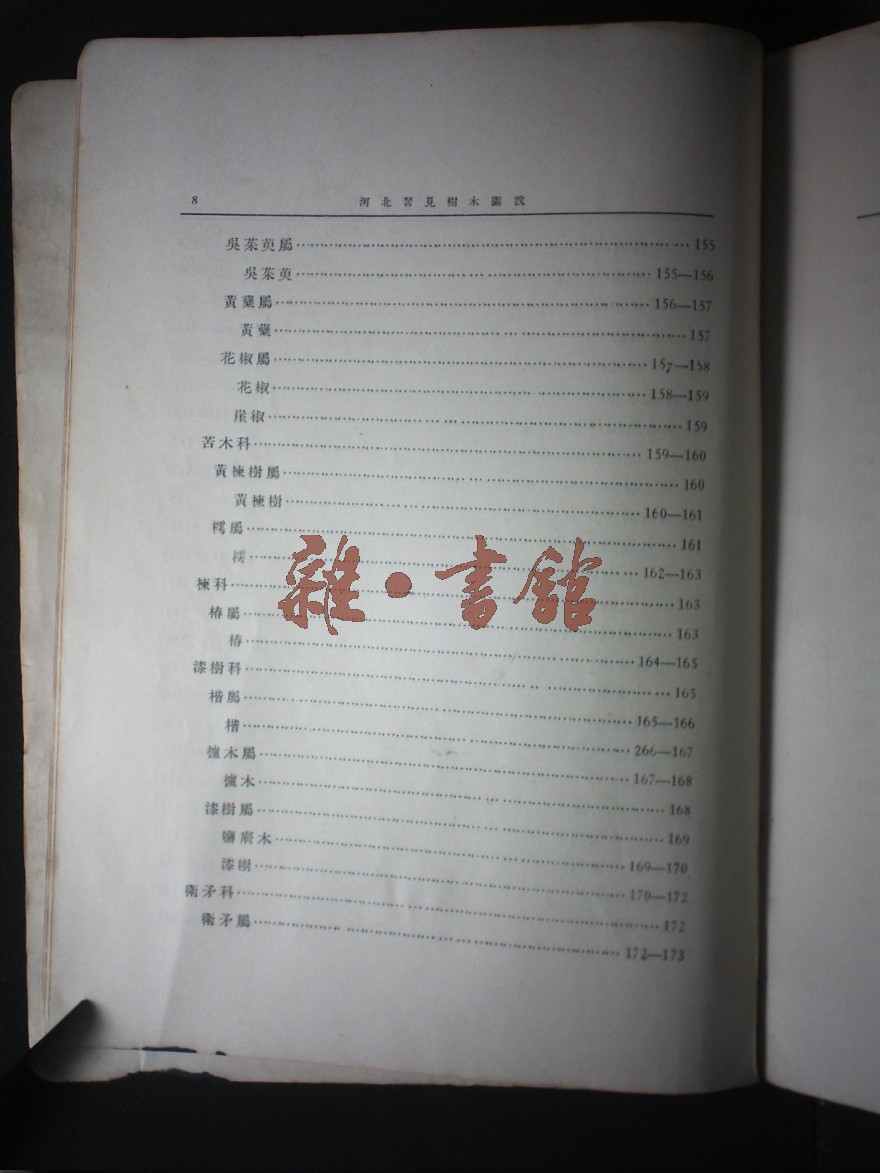 8 河北習見樹木圖說
吳茱萸屬 155
吳茱萸 155—156
黃蘗屬 156—157
黃蘗 157
花椒屬 157—158
花椒 158—159
崖椒 159
苦木科 159—160
黃楝樹屬 160
黃楝樹 160—161
樗屬 161
樗 162—163
楝科 163
椿屬 163
椿 164—165
漆樹科 165
楷屬 165—166
楷 266—167
櫨木屬 167—168
櫨木 168
漆樹屬 169
鹽膚木 169—170
漆樹 170—172
衛矛科 172
衛矛屬 172—173
雜·書館